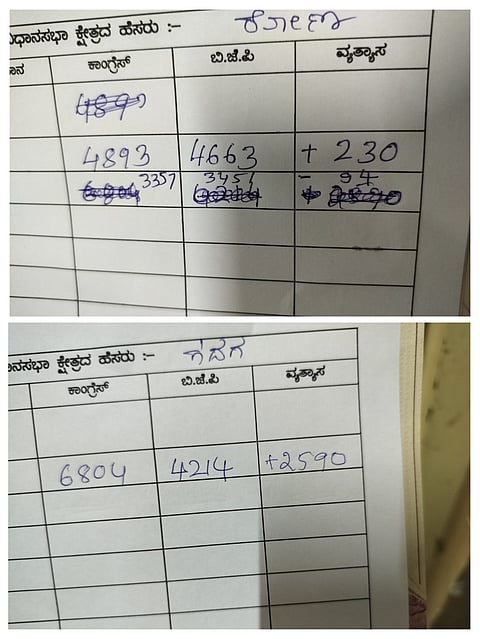 ಧಾನಸಭಾ ಕ್ಷೇತ್ರದ ಹೆಸರು :- ರೋಣ
ಕಾಂಗ್ರೆಸ್ ಬಿ.ಜೆ.ಪಿ ವ್ಯತ್ಯಾಸ
4893 4663 + 230
3357 3451 - 94
ನಸಭಾ ಕ್ಷೇತ್ರದ ಹೆಸರು :- ಗದಗ
ಕಾಂಗ್ರೆಸ್ ಬಿ.ಜೆ.ಪಿ ವ್ಯತ್ಯಾಸ
6804 4214 +2590